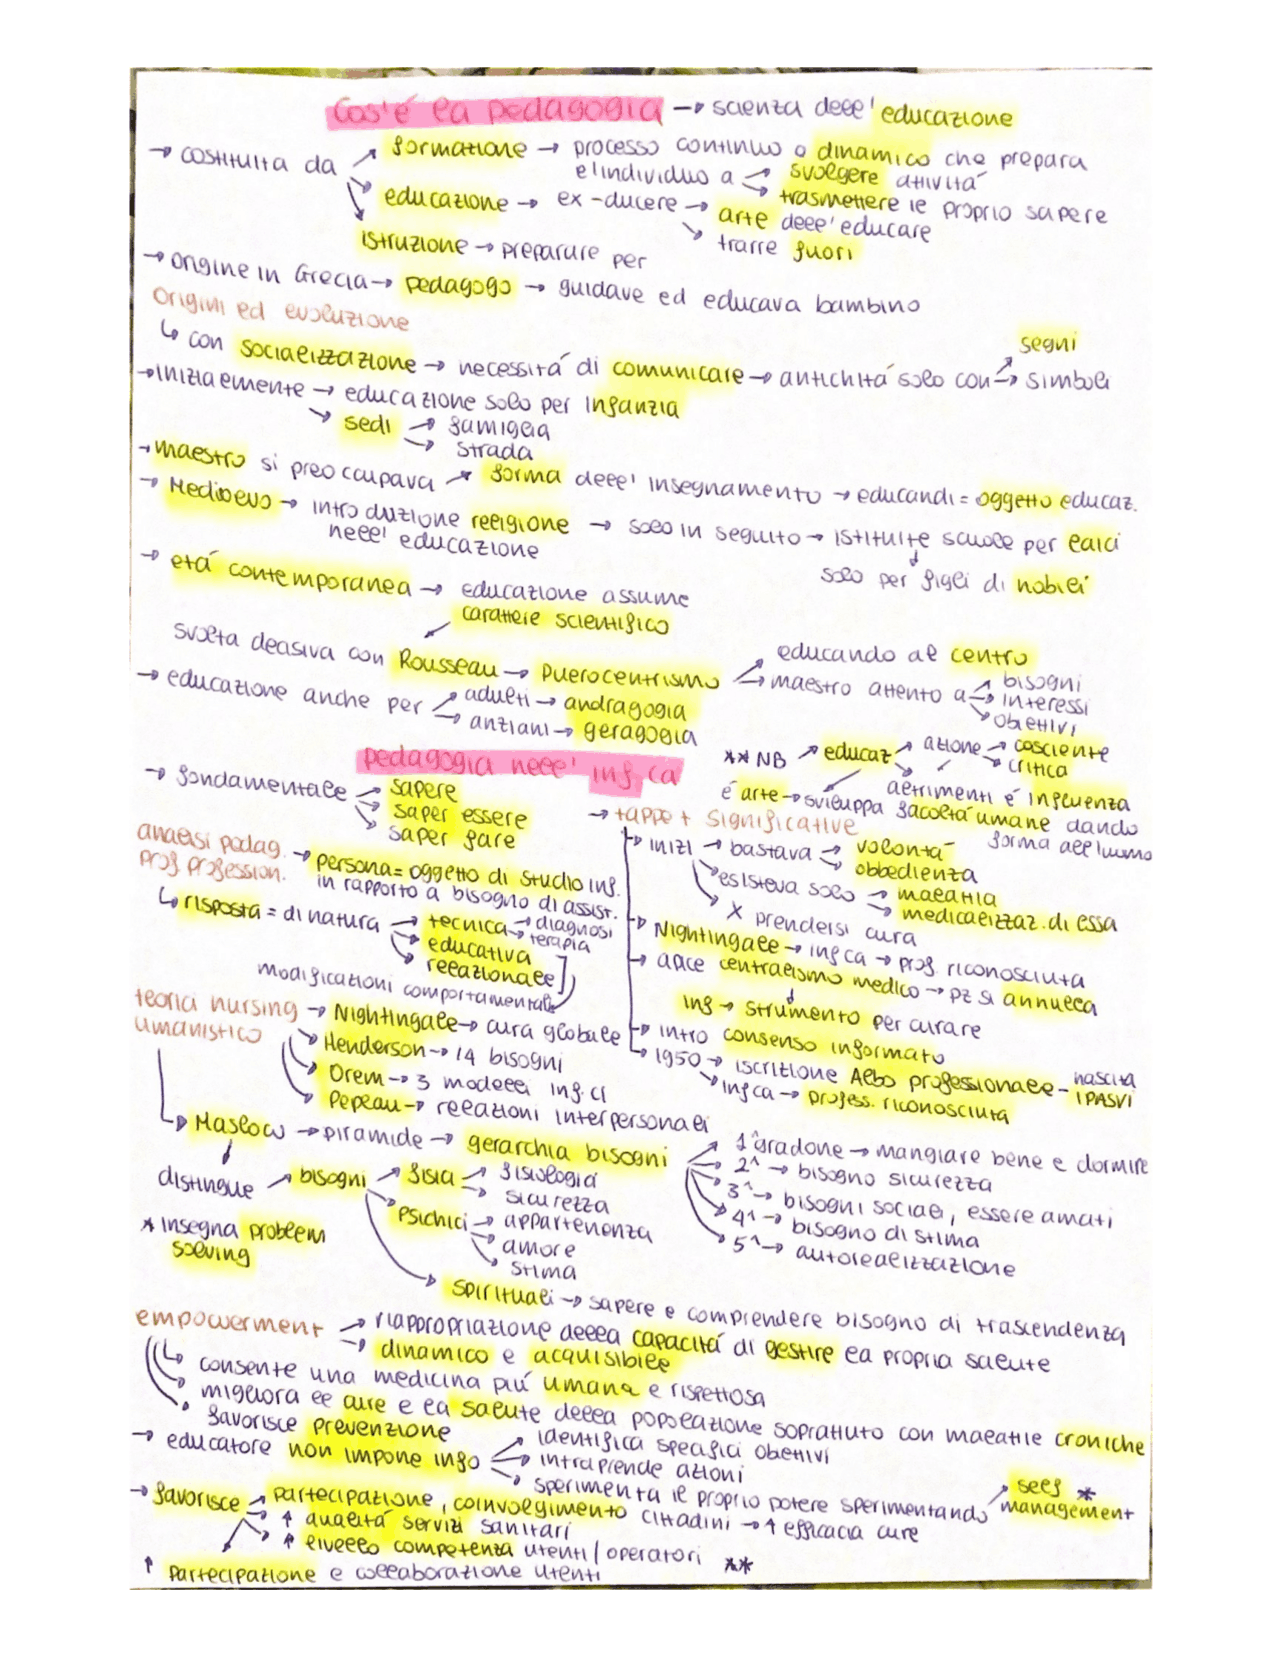 Cos'é la pedagogia → scienza dell'educazione
→ costituita da → formazione → processo continuo o dinamico che prepara
l'individuo a → svolgere attivitá
→ trasmettere il proprio sapere
→ educazione → ex-ducere → arte dell'educare
→ trarre fuori
→ istruzione → preparare per
→ origine in Grecia → pedagogo → guidave ed educava bambino
origini ed evoluzione
↳ con socializzazione → necessitá di comunicare → antichitá solo con → segni
→ simboli
→ inizialmente → educazione solo per infanzia
→ sedi → famiglia
→ strada
→ maestro si preoccupava → forma dell'insegnamento → educandi = oggetto educaz.
→ Medioevo → introduzione religione → solo in seguito → istituite scuole per laici
nell'educazione
solo per figli di nobili
→ etá contemporanea → educazione assume
carattere scientifico
svolta decisiva con Rousseau → Puerocentrismo → educando al centro
→ maestro attento a → bisogni
→ interessi
→ obettivi
→ educazione anche per → adulti → andragogia
→ anziani → geragogia
** NB → educaz → azione → cosciente
→ critica
altrimenti é influenza
é arte → sviluppa facoltá umane dando
forma all'uomo
pedagogia nell'inf.ca
→ fondamentale → sapere
→ saper essere
→ saper fare
analisi pedag.
prof profession. → persona = oggetto di studio inf.
in rapporto a bisogno di assist.
↳ risposta = di natura → tecnica → diagnosi
→ terapia
→ educativa
→ relazionale
modificazioni comportamentali
→ tappe + significative
→ inizi → bastava → volontá
→ obbedienza
→ esisteva solo → malattia
→ medicalizzaz. di essa
→ x prendersi cura
→ Nightingale → inf ca → prof. riconosciuta
→ apice centralismo medico → pz si annulla
inf → strumento per curare
→ intro consenso informato
→ 1950 → iscrizione Albo professionale - nascita
IPASVI
→ inf ca → profess. riconosciuta
teorici nursing
umanistico → Nightingale → cura globale
→ Henderson → 14 bisogni
→ Orem → 3 modelli inf. ci
→ Peplau → relazioni interpersonali
→ Maslow → piramide → gerarchia bisogni → 1^gradone → mangiare bene e dormire
→ 2^ → bisogno sicurezza
→ 3^ → bisogni sociali, essere amati
→ 4^ → bisogno di stima
→ 5^ → autorealizzazione
distingue → bisogni → fisici → fisiologici
→ sicurezza
→ psichici → appartenenza
→ amore
→ stima
→ spirituali → sapere e comprendere bisogno di trascendenza
* insegna problem
solving
empowerment → riappropriazione della capacitá di gestire la propria salute
→ dinamico e acquisibile
↳ consente una medicina piú umana e rispettosa
→ migliora le cure e la salute della popolazione soprattuto con malattie croniche
→ favorisce prevenzione
→ educatore non impone info → identifica specifici obettivi
→ intraprende azioni
→ sperimenta il proprio potere sperimentando → self *
management
→ favorisce → partecipazione, coinvolgimento cittadini → ↑ efficacia cure
→ ↑ qualitá servizi sanitari
→ ↑ livello competenza utenti / operatori **
↑ partecipazione e collaborazione utenti